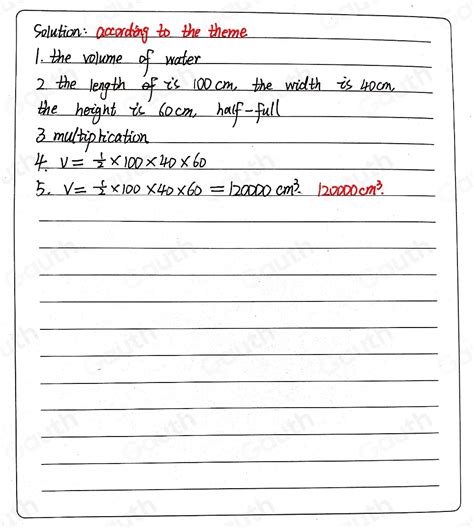 Solution: according to the theme
1. the volume of water
2. the length of is 100 cm, the width is 40 cm,
the height is 60 cm, half-full
3. multiplication
4. V = ½ × 100 × 40 × 60
5. V = ½ × 100 × 40 × 60 = 120000 cm³. 120000 cm³.